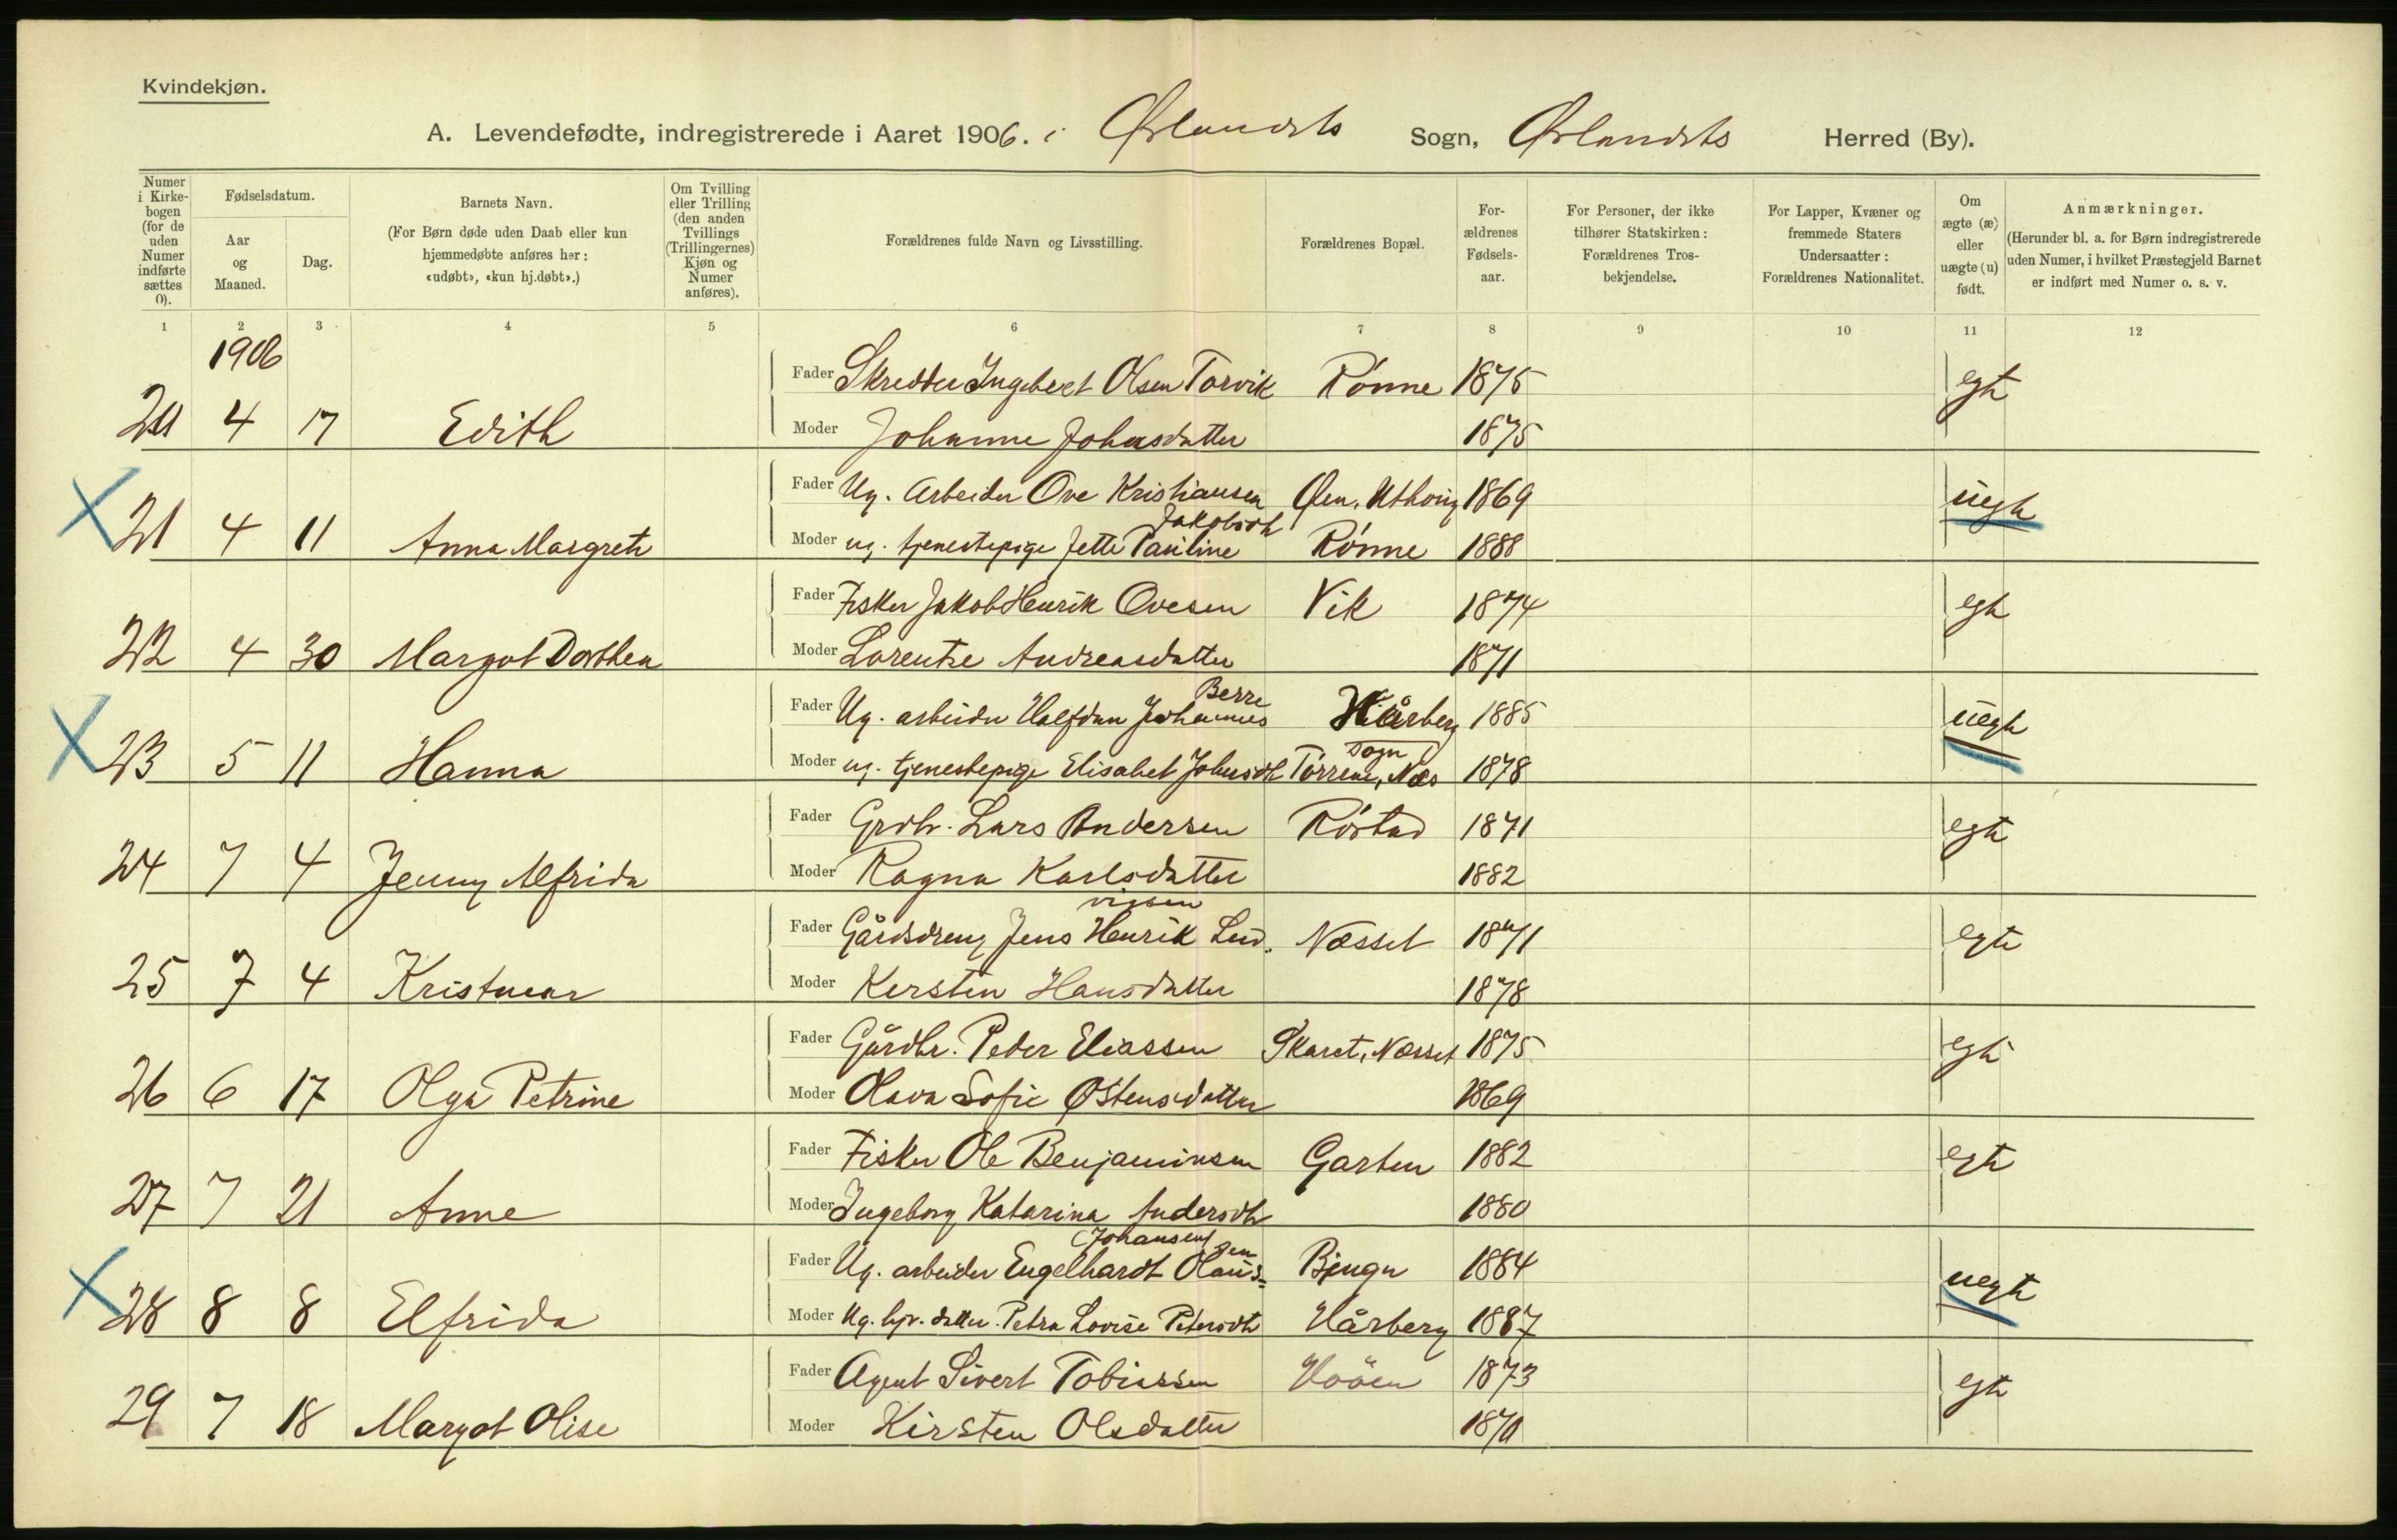 Kvindekjøn.
A. Levendefødte, indregistrerede i Aaret 1906. i Ørlandets Sogn, Ørlandets Herred (By).
Numer i Kirkebogen (for de uden Numer indførte sættes 0).
Fødselsdatum.
Aar og Maaned.
Dag.
Barnets Navn.
(For Børn døde uden Daab eller kun hjemmedøbte anføres her: «udøbt», «kun hj.døbt».)
Om Tvilling eller Trilling (den anden Tvillings (Trillingernes) Kjøn og Numer anføres).
Forældrenes fulde Navn og Livsstilling.
Forældrenes Bopæl.
Forældrenes Fødselsaar.
For Personer, der ikke tilhører Statskirken: Forældrenes Trosbekjendelse.
For Lapper, Kvæner og fremmede Staters Undersaatter: Forældrenes Nationalitet.
Om ægte (æ) eller uægte (u) født.
Anmærkninger.
(Herunder bl. a. for Børn indregistrerede uden Numer, i hvilket Præstegjeld Barnet er indført med Numer o. s. v.
1 2 3 4 5 6 7 8 9 10 11 12
1906
Fader Skredder Ingebert Olsen Torvik Rönne 1875 egte
20 4 17 Edith Moder Johanne Johnsdatter 1875
Fader Ug. Arbeider Ove Kristiansen Øen, Uthaug 1869 uegte
Jakobsdt
X 21 4 11 Anna Margrete Moder ug. tjenestepige Jette Pauline Rönne 1888
Fader Fisker Jakob Henrik Ovesen Vik 1874 egte
22 4 30 Margot Dorthea Moder Lorentze Andreasdatter 1871
Berre
Fader Ug. arbeider Halfdan Johannes Hårberg 1885 uegte
Sogn
X 23 5 11 Hanna Moder ug. tjenestepige Elisabet Johnsdt Törrem, Næs 1878
Fader Grdbr. Lars Andersen Röstad 1871 egte
24 7 4 Jenny Alfrida Moder Ragna Karlsdatter 1882
vigsen
Fader Gårdsdreng Jens Henrik Lud. Næsset 1871 egte
25 7 4 Kristmar Moder Kersten Hansdatter 1878
Fader Gårdbr. Peder Eliassen Skaret, Næsset 1875 egte
26 6 17 Olga Petrine Moder Olava Sofie Østensdatter 1869
Fader Fisker Ole Benjaminsen Garten 1882 egte
27 7 21 Anne Moder Ingeborg Katarina Andersdt 1880
(Johansen) sen
Fader Ug. arbeider Engelhardt Olaus= Bjugn 1884 uegte
X 28 8 8 Elfrida Moder Ug. hjv. datter. Petra Lovise Petersdt Hårberg 1887
Fader Agent Sivert Tobiassen 1873 egte
29 7 18 Margot Olise Moder Kirsten Olsdatter 1870